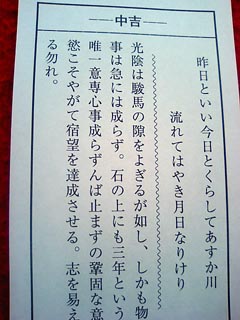 中吉
昨日といい今日とくらしてあすか川
流れてはやき月日なりけり
光陰は駿馬の隙をよぎるが如し、しかも物
事は急には成らず。石の上にも三年という
唯一意専心事成らずんば止まずの鞏固な意
慾こそやがて宿望を達成させる。志を易え
る勿れ。